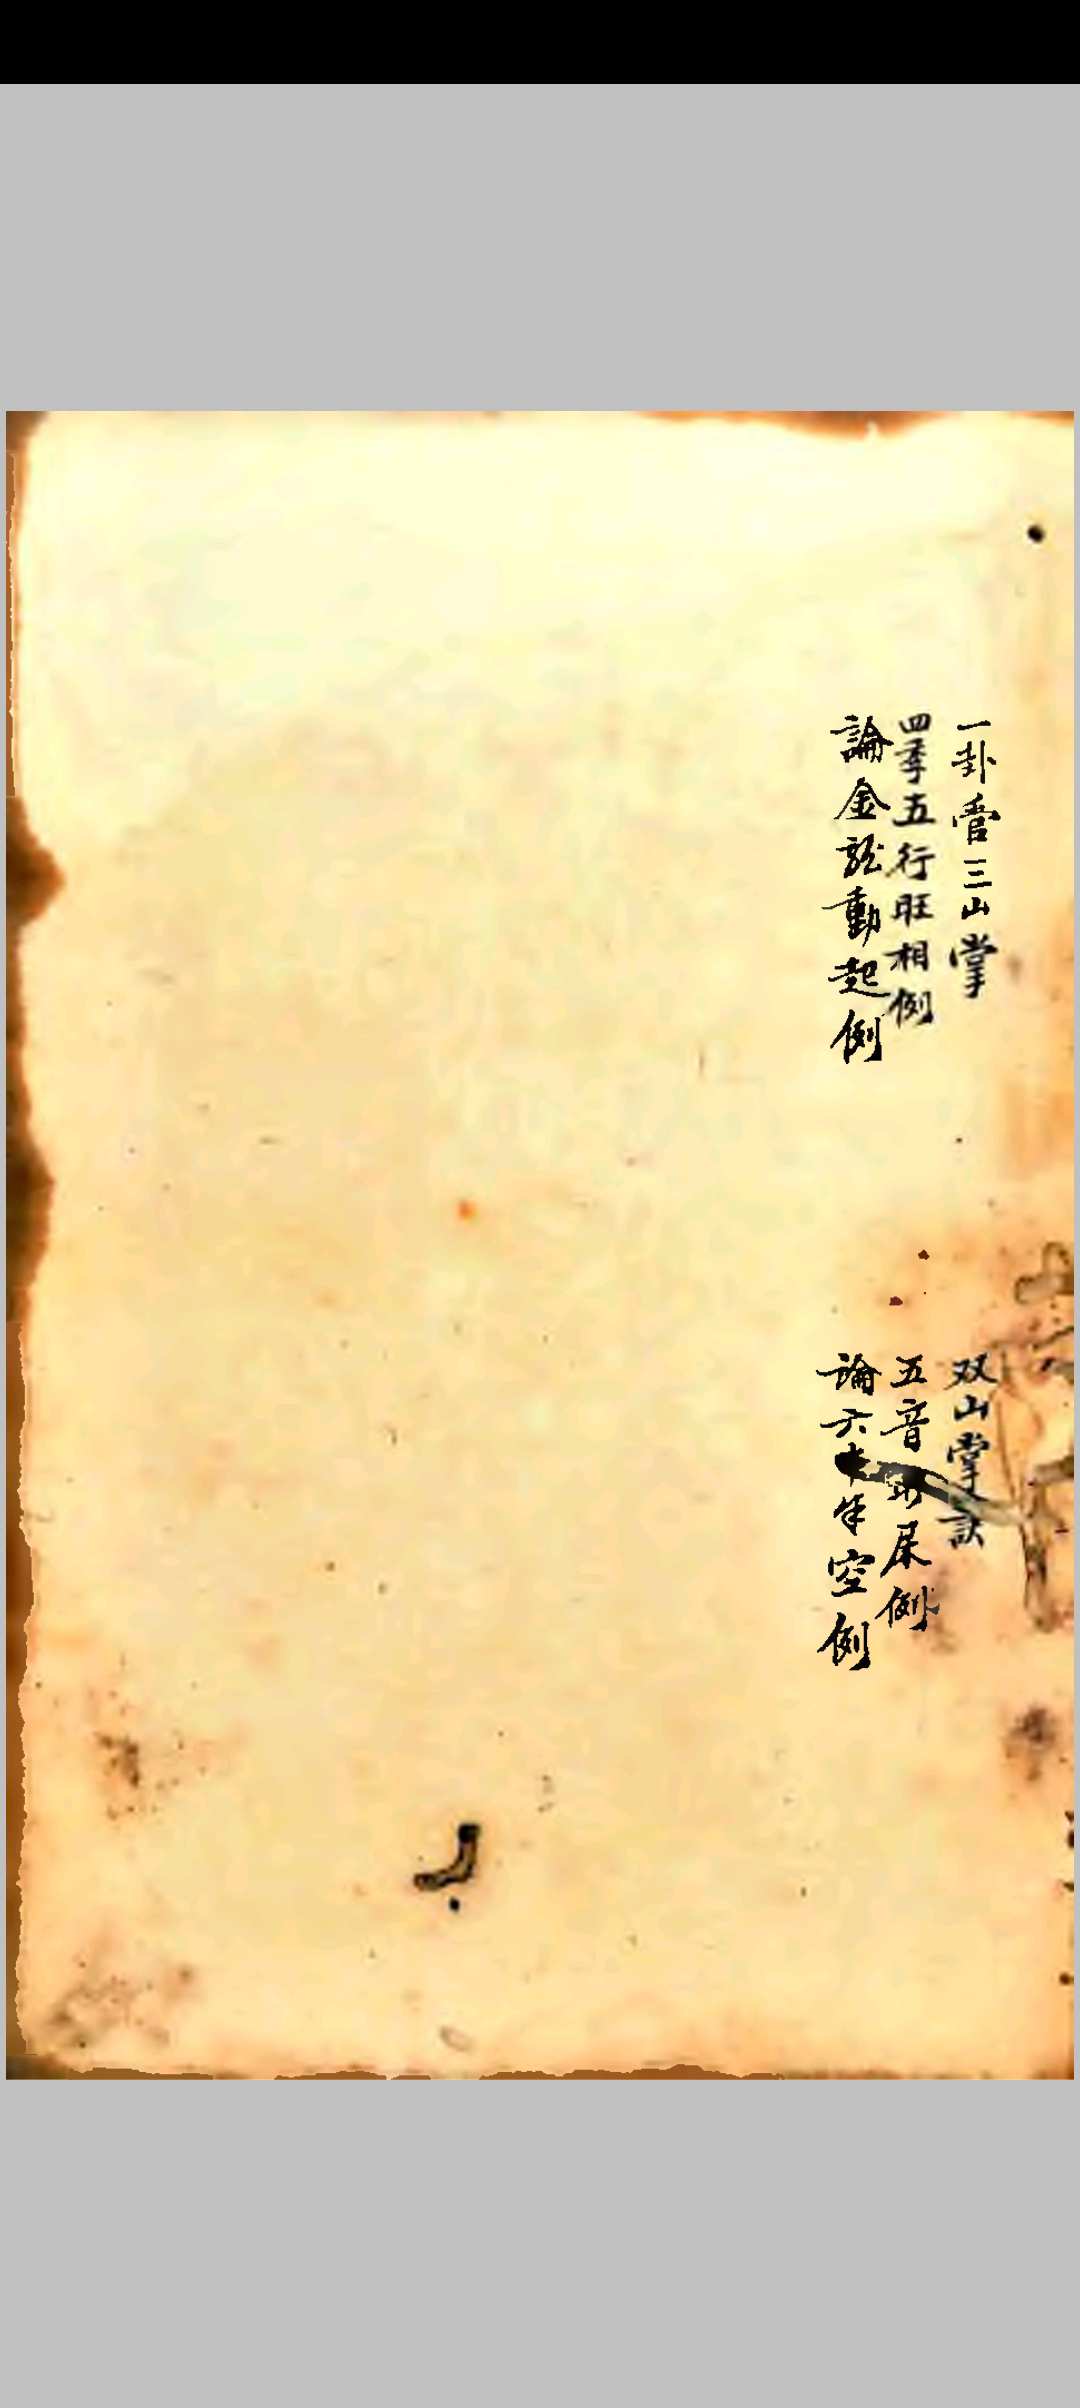 一卦管三山掌
双山掌訣
四季五行旺相例
五音 屎例
論金龍動起例
論六 年空例